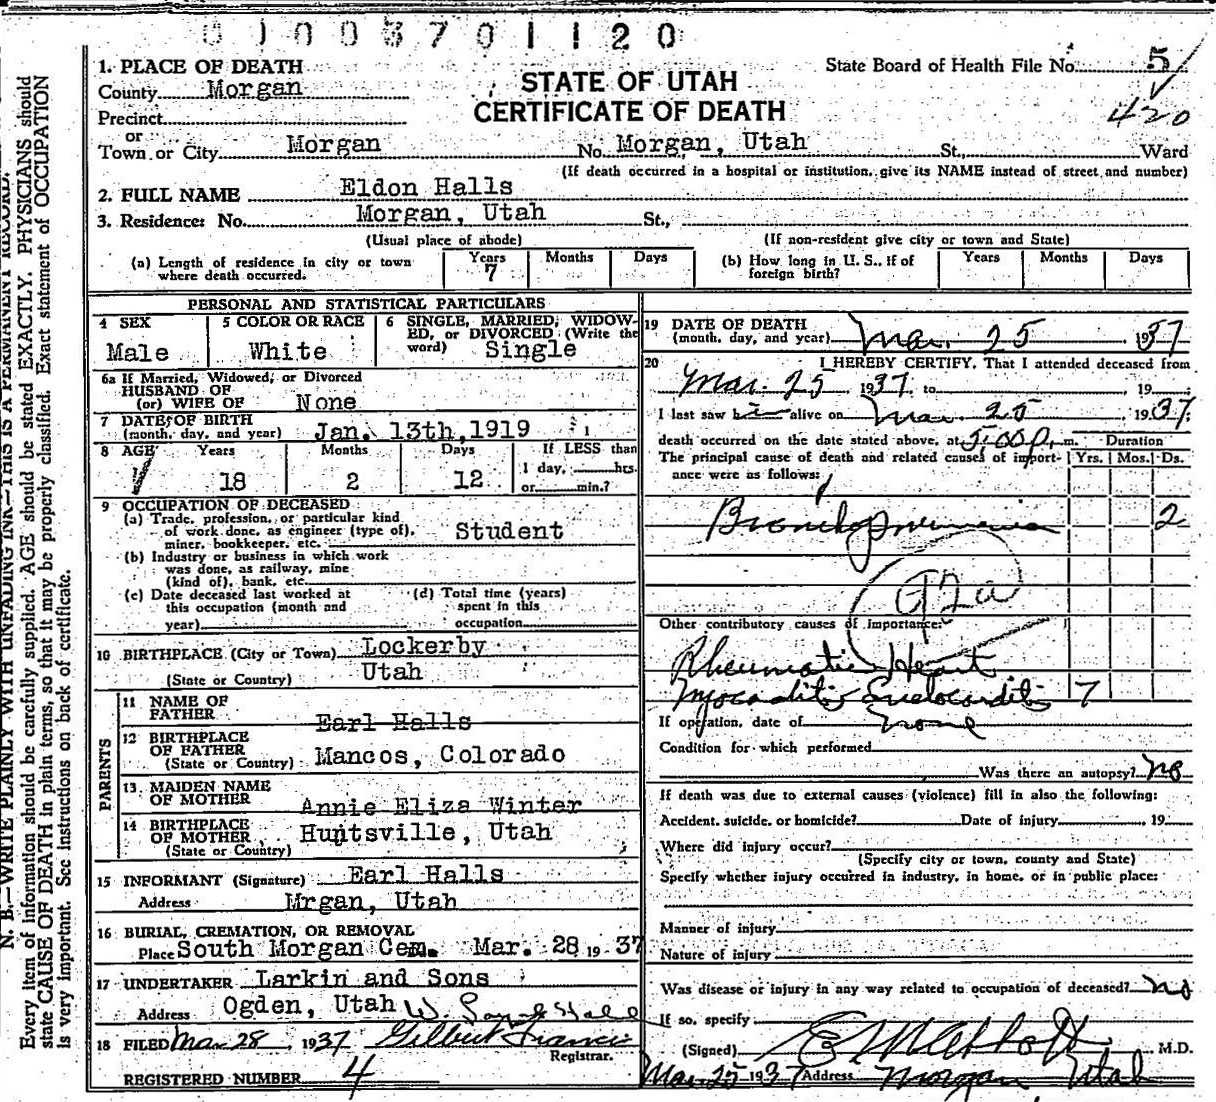 0 1 0 0 3 7 0 1 1 2 0
1. PLACE OF DEATH
County Morgan
Precinct
or
Town or City Morgan No. Morgan, Utah St., Ward
(If death occurred in a hospital or institution, give its NAME instead of street and number)
STATE OF UTAH
CERTIFICATE OF DEATH
State Board of Health File No. 5
420
2. FULL NAME Eldon Halls
3. Residence: No. Morgan, Utah St.,
(Usual place of abode) (If non-resident give city or town and State)
(a) Length of residence in city or town where death occurred. Years 7 Months Days
(b) How long in U. S., if of foreign birth? Years Months Days
PERSONAL AND STATISTICAL PARTICULARS
4 SEX Male
5 COLOR OR RACE White
6 SINGLE, MARRIED, WIDOWED, or DIVORCED, (Write the word) Single
6a If Married, Widowed, or Divorced
HUSBAND OF
(or) WIFE OF None
7 DATE OF BIRTH
(month, day, and year) Jan. 13th, 1919
8 AGE Years 18 Months 2 Days 12 If LESS than 1 day, hrs. or min.?
9 OCCUPATION OF DECEASED
(a) Trade, profession, or particular kind of work done, as engineer (type of), miner, bookkeeper, etc. Student
(b) Industry or business in which work was done, as railway, mine (kind of), bank, etc.
(c) Date deceased last worked at this occupation (month and year)
(d) Total time (years) spent in this occupation
10 BIRTHPLACE (City or Town) Lockerby
(State or Country) Utah
PARENTS
11 NAME OF FATHER Earl Halls
12 BIRTHPLACE OF FATHER
(State or Country) Mancos, Colorado
13 MAIDEN NAME OF MOTHER Annie Eliza Winter
14 BIRTHPLACE OF MOTHER Huntsville, Utah
(State or Country)
15 INFORMANT (Signature) Earl Halls
Address Mrgan, Utah
16 BURIAL, CREMATION, OR REMOVAL
Place South Morgan Cem. Mar. 28 1937
17 UNDERTAKER Larkin and Sons
Address Ogden, Utah
18 FILED Mar 28 1937 Gilbert Francis
Registrar.
REGISTERED NUMBER 4
19 DATE OF DEATH
(month, day, and year) Mar. 25 1937
20 I HEREBY CERTIFY, That I attended deceased from
Mar. 25 1937 to 19
I last saw h alive on Mar. 25 1937
death occurred on the date stated above, at 5:00 p. m.
Duration
The principal cause of death and related causes of importance were as follows: Yrs. Mos. Ds.
Bronchopneumonia 2
Other contributory causes of importance:
Rheumatic Heart
Myocarditis Endocarditis 7
If operation, date of none
Condition for which performed
Was there an autopsy? no
If death was due to external causes (violence) fill in also the following:
Accident, suicide, or homicide? Date of injury 19
Where did injury occur?
(Specify city or town, county and State)
Specify whether injury occurred in industry, in home, or in public place:
Manner of injury
Nature of injury
Was disease or injury in any way related to occupation of deceased? no
If so, specify
(Signed) M.D.
Mar 25 1937 Address Morgan Utah
N. B.—WRITE PLAINLY WITH UNFADING INK—THIS IS A PERMANENT RECORD.
Every item of information should be carefully supplied. AGE should be stated EXACTLY. PHYSICIANS should
state CAUSE OF DEATH in plain terms, so that it may be properly classified. Exact statement of OCCUPATION
is very important. See instructions on back of certificate.